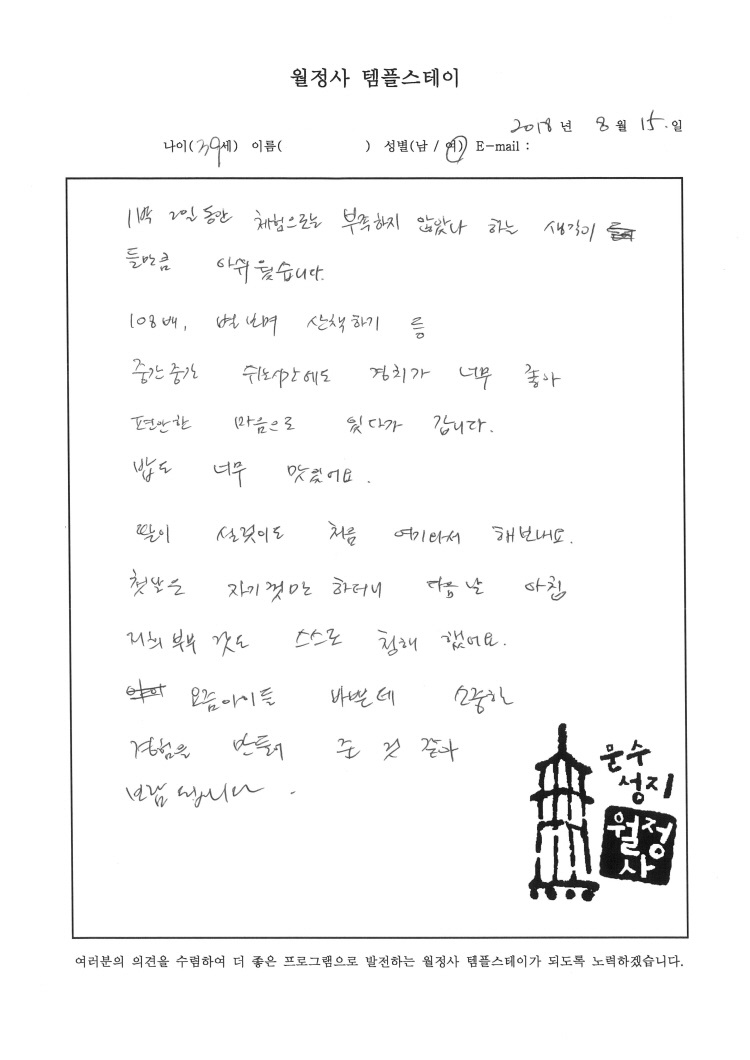 월정사 템플스테이
2018년 8월 15.일
나이(39세) 이름( ) 성별(남 / 여) E-mail :
1박 2일 동안 체험으로는 부족하지 않았나 하는 생각이
들만큼 아쉬웠습니다.
108배, 별보며 산책하기 등
중간중간 쉬는시간에도 경치가 너무 좋아
편안한 마음으로 있다가 갑니다.
밥도 너무 맛있어요.
딸이 설겆이도 처음 여기와서 해보내요.
첫날은 자기것만 하더니 다음날 아침
저희 부부 것도 스스로 청해 했어요.
요즘아이들 바쁜데 소중한
경험을 만들어 준 것 같아
보람됩니다.
문수
성지
월정
사
여러분의 의견을 수렴하여 더 좋은 프로그램으로 발전하는 월정사 템플스테이가 되도록 노력하겠습니다.